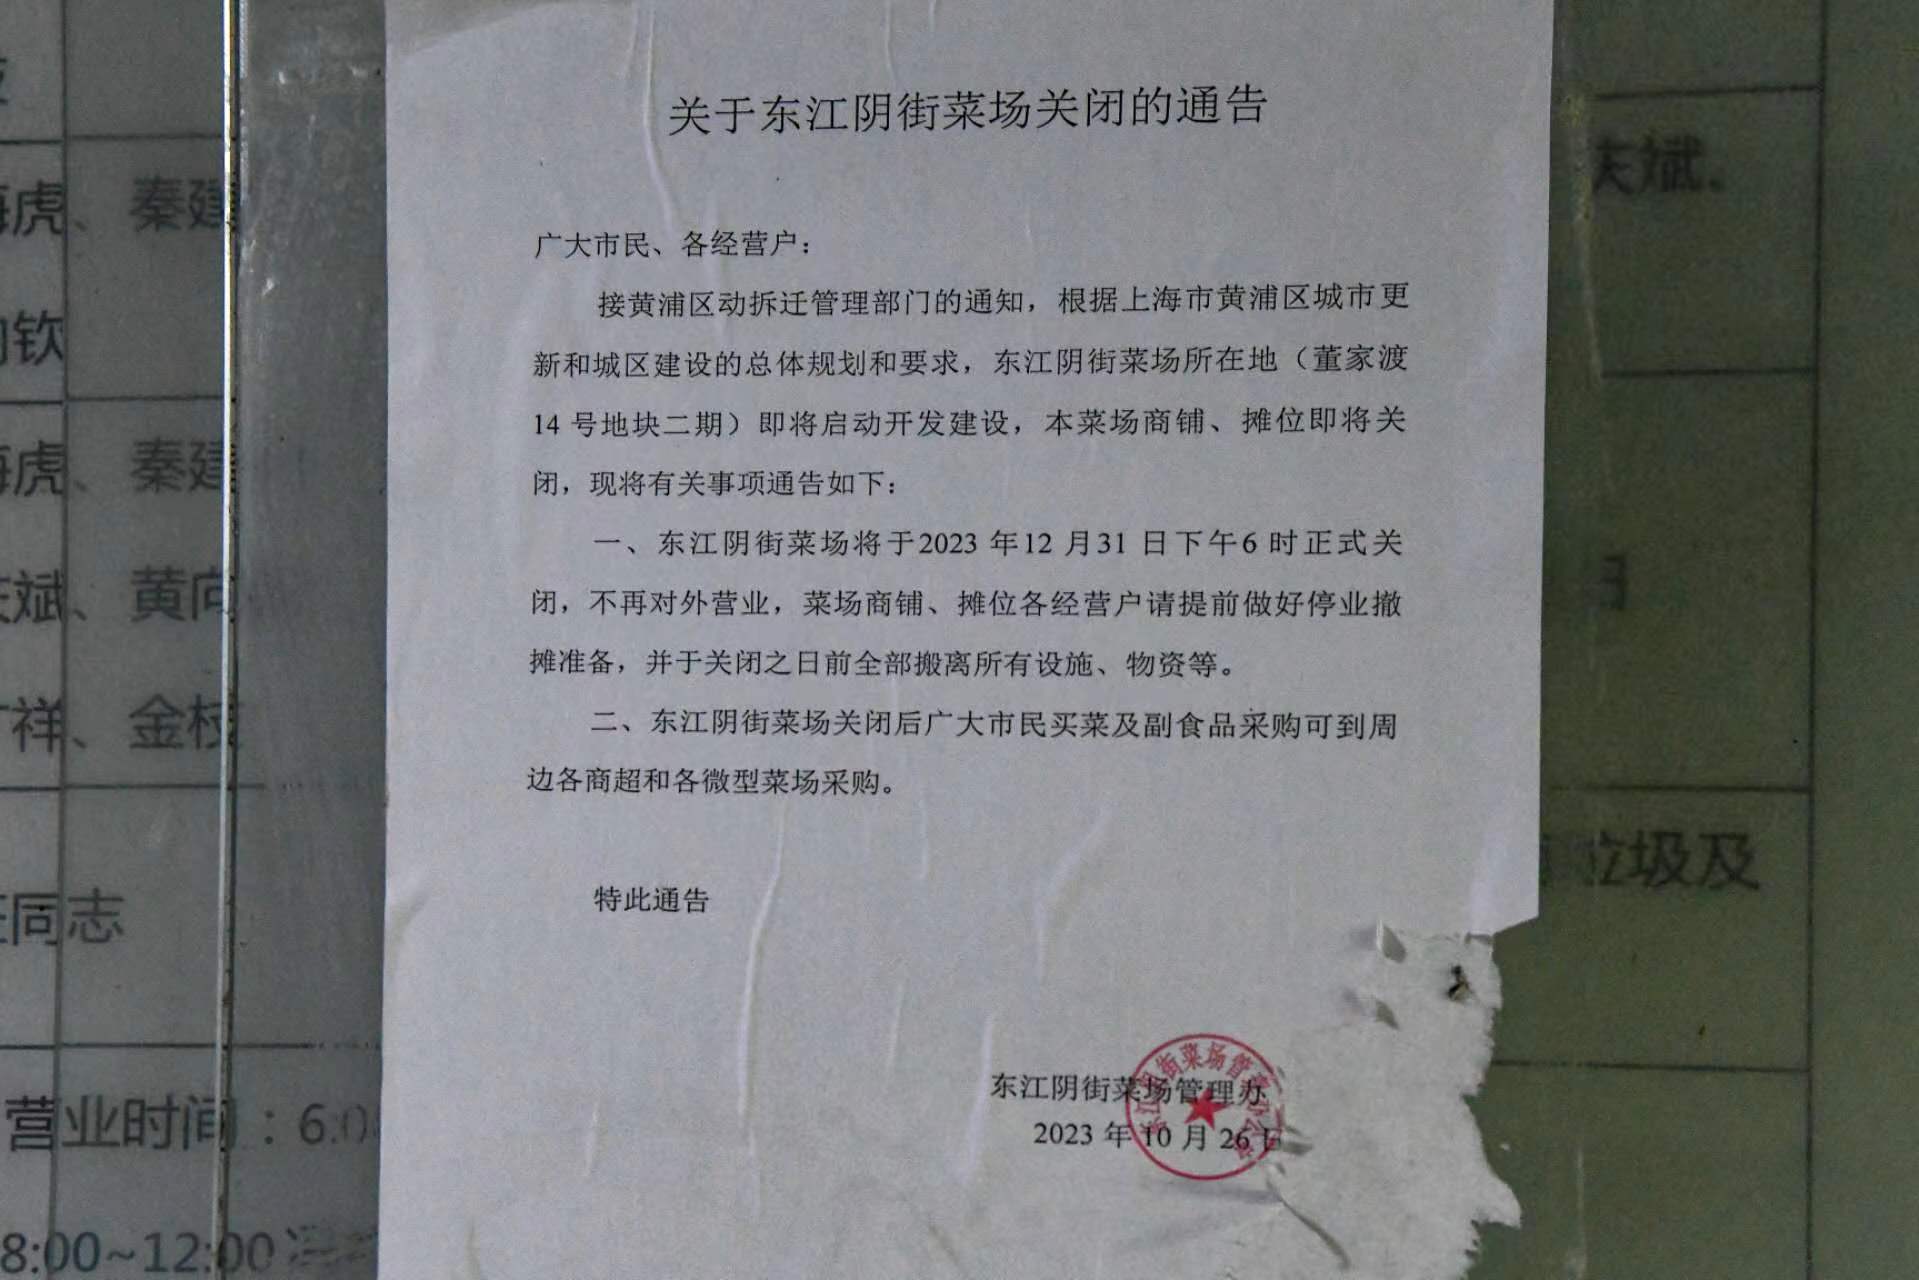 关于东江阴街菜场关闭的通告
广大市民、各经营户：
接黄浦区动拆迁管理部门的通知，根据上海市黄浦区城市更
新和城区建设的总体规划和要求，东江阴街菜场所在地（董家渡
14号地块二期）即将启动开发建设，本菜场商铺、摊位即将关
闭，现将有关事项通告如下：
一、东江阴街菜场将于2023年12月31日下午6时正式关
闭，不再对外营业，菜场商铺、摊位各经营户请提前做好停业撤
摊准备，并于关闭之日前全部搬离所有设施、物资等。
二、东江阴街菜场关闭后广大市民买菜及副食品采购可到周
边各商超和各微型菜场采购。
特此通告
东江阴街菜场管理办
2023年10月26日
虎、秦建
钦
虎、秦建
斌、黄向
祥、金
同志
营业时间：6:0
8:00~12:00
斌、
日
垃圾及